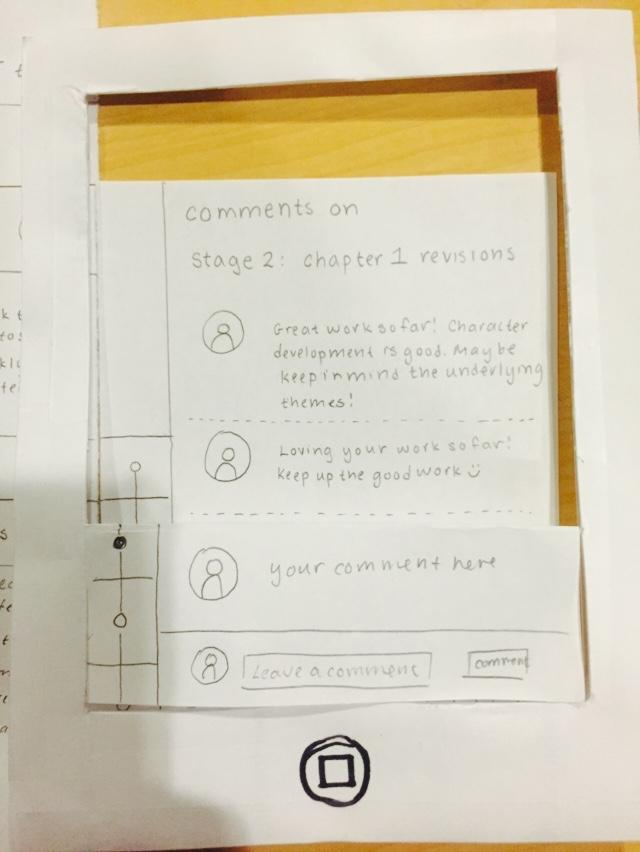 comments on
Stage 2: chapter 1 revisions
Great work so far! Character
development is good. Maybe
keep in mind the underlying
themes!
Loving your work so far!
Keep up the good work
your comment here
Leave a comment
comment